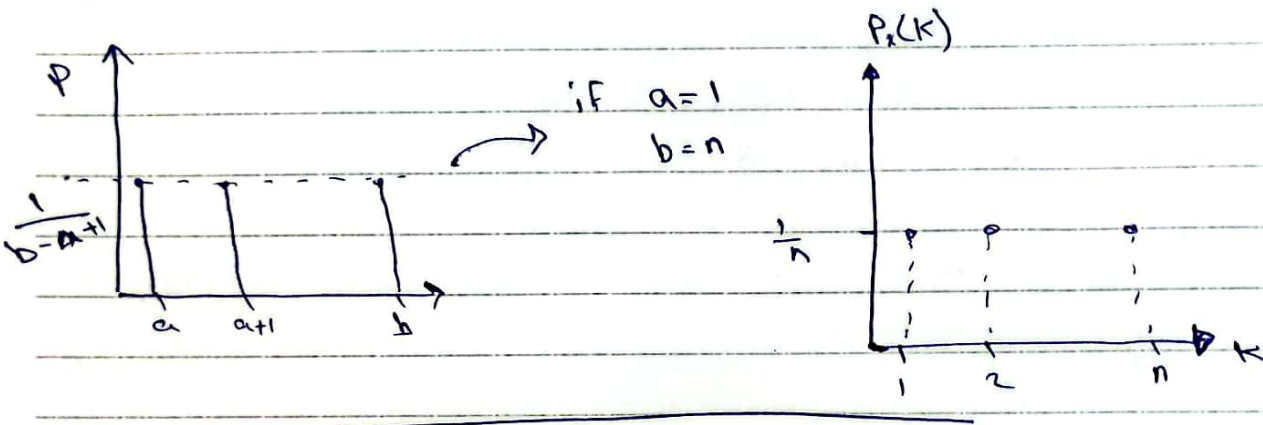 P
1
b-a+1
a a+1 b
if a=1
b=n
Pₓ(K)
1
n
1 2 n
K